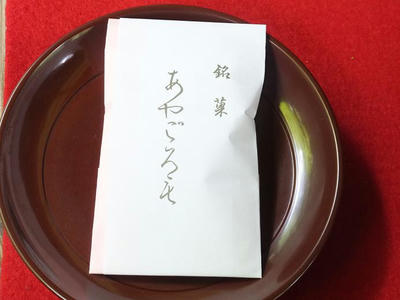 銘菓
あやごろも